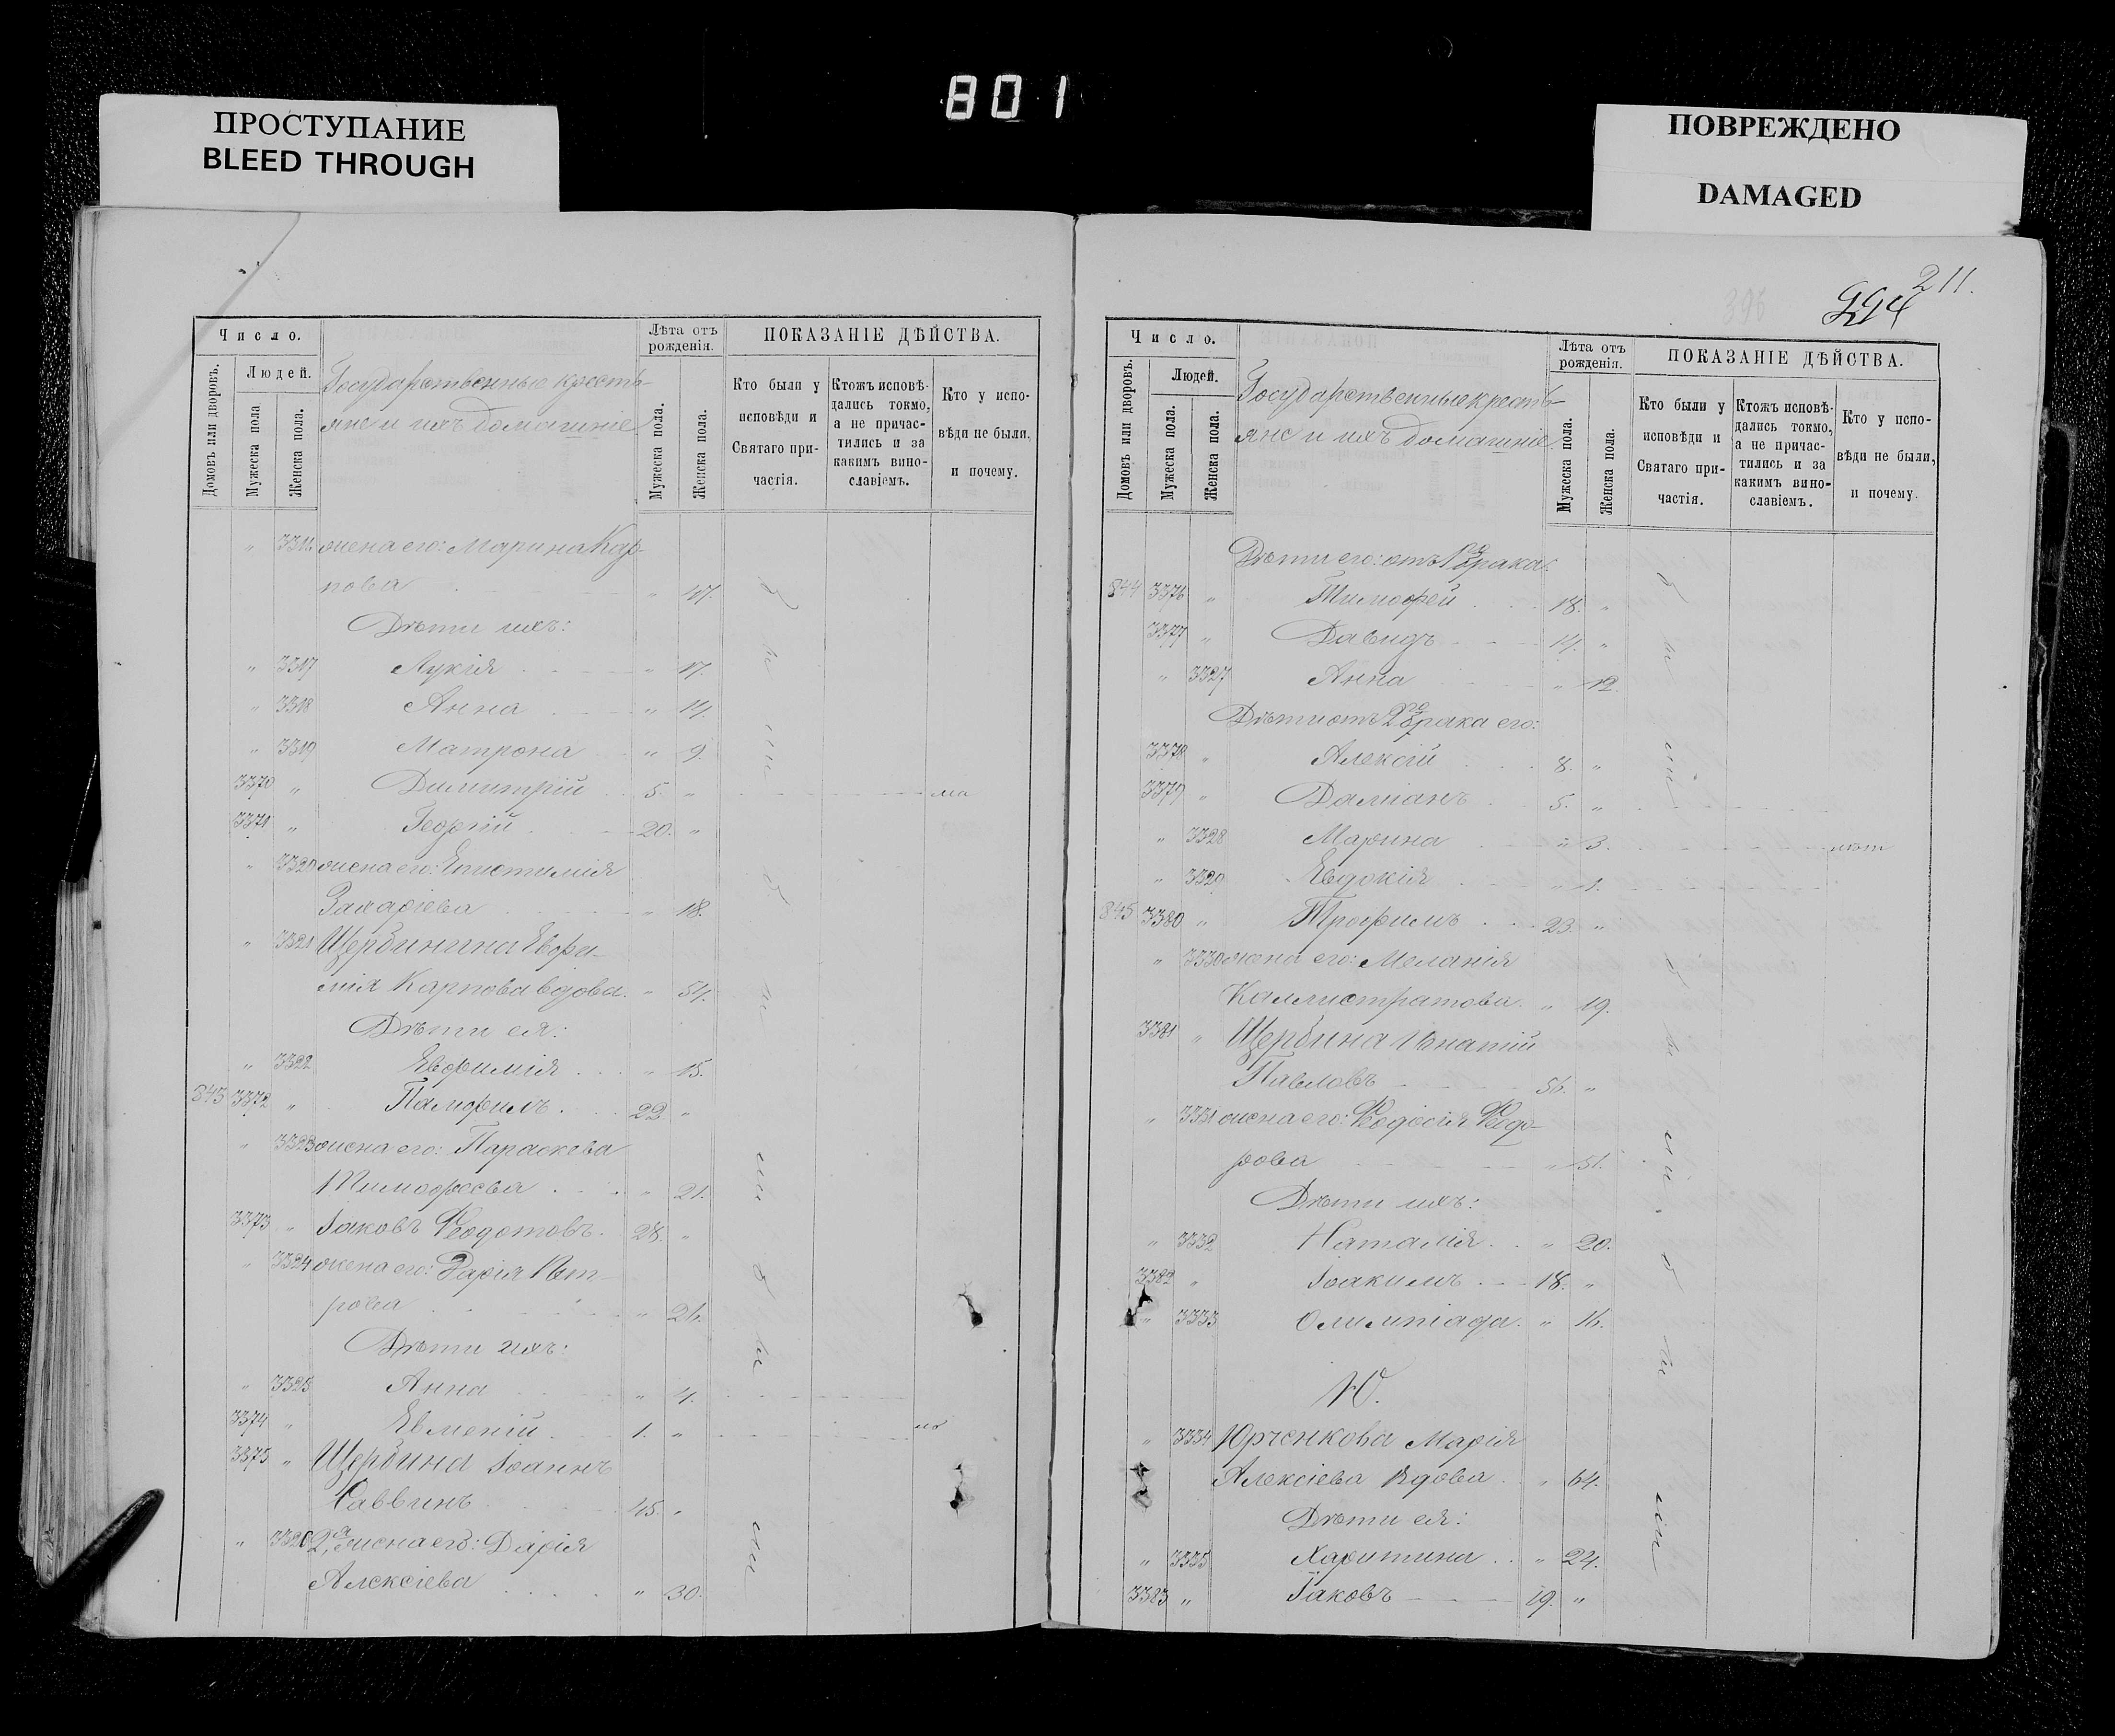 801
ПРОСТУПАНИЕ
BLEED THROUGH
ПОВРЕЖДЕНО
DAMAGED
Число.
Людей.
Домовъ или дворовъ.
Мужеска пола
Женска пола.
Государственные кресть-
яне и ихъ домашніе
Лѣта отъ
рожденія.
Мужеска пола.
Женска пола.
ПОКАЗАНІЕ ДѢЙСТВА.
Кто были у
исповѣди и
Святаго при-
частія.
Ктожъ исповѣ-
дались токмо,
а не причас-
тились и за
какимъ вино-
славіемъ.
Кто у испо-
вѣди не были,
и почему.
" жена его: Марина Кар-
пова " 47.
Дѣти ихъ:
" 3317 Лукія " 17.
" 3318 Анна " 14.
" 3319 Матрона " 9.
3370 " Димитрій 5. "
3371 " Георгій 20. "
" 3320 жена его: Епистимія
Захаріева " 18.
" 3321 Щербинина Евфи-
мія Карпова вдова. " 54.
Дѣти ея:
" 3322 Евфимія " 15.
843 3372 " Памфилъ 22 "
" 3323 жена его: Параскева
Тимофеева " 21.
3373 " Іаковъ Ѳеодотовъ 28. "
" 3324 жена его: Дарія Пет-
рова " 26.
Дѣти ихъ:
" 3325 Анна " 4.
3374 " Евменій 1. "
3375 " Щербина Іоаннъ
Саввинъ 45. "
" 3326 2я жена его: Дарія
Алексіева " 30.
211.
Число.
Людей.
Домовъ или дворовъ.
Мужеска пола.
Женска пола.
Государственные кресть-
яне и ихъ домашніе
Лѣта отъ
рожденія.
Мужеска пола.
Женска пола.
ПОКАЗАНІЕ ДѢЙСТВА.
Кто были у
исповѣди и
Святаго при-
частія.
Ктожъ исповѣ-
дались токмо,
а не причас-
тились и за
какимъ вино-
славіемъ.
Кто у испо-
вѣди не были,
и почему.
Дѣти его: отъ 1го брака:
844 3376 " Тимофей 18. "
3377 " Давидъ 14. "
" 3327 Анна " 12.
Дѣти отъ 2го брака его:
3378 " Алексій 8. "
3379 " Даміанъ 5. "
" 3328 Марина " 3. лѣт
" 3329 Евдокія " 1.
845 3380 " Трофимъ 23. "
" 3330 жена его: Меланія
Каллистратова. " 19.
3381 " Щербина Игнатій
Павловъ 56. "
" 3331 жена его: Ѳеодосія Ѳедо-
рова " 51.
Дѣти ихъ:
" 3332 Наталія " 20.
3382 " Іоакимъ 18. "
" 3333 Олимпіада. " 16.
Ю.
" 3334 Юрченкова Марія
Алексіева вдова. " 64.
Дѣти ея:
" 3335 Харитина " 24.
3383 " Іаковъ 19. "